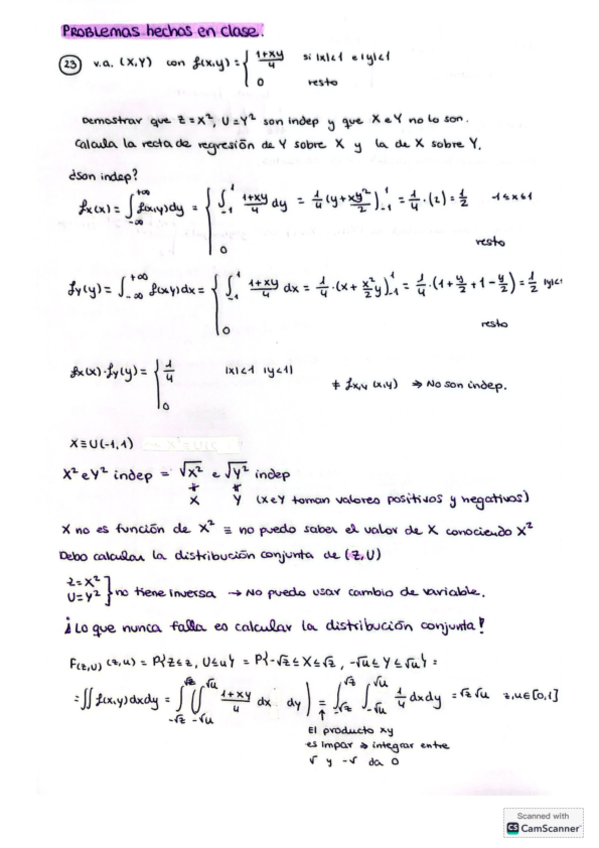 PROBLEMAS hechos en clase:
23 v.a. (X,Y) con f(x,y) = { 1+xy/4 si |x|<1 e |y|<1
0 resto
Demostrar que Z=X², U=Y² son indep y que X e Y no lo son.
Calcula la recta de regresión de Y sobre X y la de X sobre Y.
¿Son indep?
fx(x) = ∫_{-∞}^{+∞} f(x,y)dy = { ∫_{-1}^{1} 1+xy/4 dy = 1/4 (y + xy²/2)_{-1}^{1} = 1/4 · (2) = 1/2 -1≤x≤1
0 resto
fy(y) = ∫_{-∞}^{+∞} f(x,y)dx = { ∫_{-1}^{1} 1+xy/4 dx = 1/4 · (x + x²/2 y)_{-1}^{1} = 1/4 · (1 + y/2 + 1 - y/2) = 1/2 |y|<1
0 resto
fx(x)·fy(y) = { 1/4 |x|<1 |y<1|
0
≠ fx,y (x,y) ⇒ No son indep.
X ≡ U(-1,1)
X² e Y² indep = √X² e √Y² indep
X Y (X e Y toman valores positivos y negativos)
X no es función de X² ≡ no puedo saber el valor de X conociendo X²
Debo calcular la distribución conjunta de (Z,U)
Z=X²
U=Y² } no tiene inversa → No puedo usar cambio de variable.
¡Lo que nunca falla es calcular la distribución conjunta!
F(z,u) (z,u) = P{Z≤z, U≤u} = P{-√z ≤ X ≤ √z, -√u ≤ Y ≤ √u} =
= ∫∫ f(x,y)dxdy = ∫_{-√z}^{√z} ( ∫_{-√u}^{√u} 1+xy/4 dx dy ) = ∫_{-√z}^{√z} ∫_{-√u}^{√u} 1/4 dxdy = √z √u z,u∈[0,1]
El producto xy
es impar ⇒ integrar entre
√ y -√ da 0
Scanned with
CS CamScanner